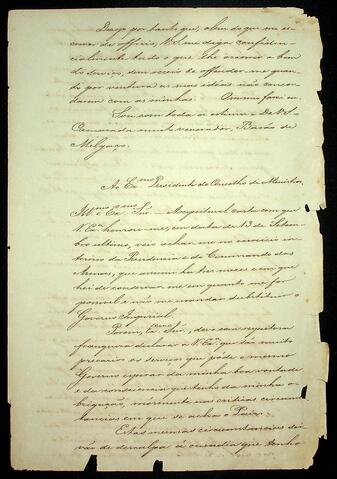 Desejo portanto que, alem do que me
de officio, V.S. me diga confiden-
cialmente tudo o que lhe occorrer a bem
do serviço, sem receio de offender-me quan-
do por ventura as suas idéas não concor-
darem com as minhas.
Sou com toda a estima De V.S.
Camarada muito venerador, Barão de
Melgaço.
Ao Exmo Presidente do Conselho de Ministros,
Illmo e Exmo Snr. — A respeitavel carta com que
V. Exa honrou-me, em data de 13 de Setem-
bro ultimo, veio achar-me no exercicio in-
terino da Presidencia e do Commando das
Armas, que assumi ha tres mezes e em que
hei de conservar-me em quanto me for
possivel e não me mandar substituir o
Governo Imperial.
Porem, Exmo Snr., devo com respeitosa
franqueza declarar a V. Exa que são muito
precarios os serviços que póde o mesmo
Governo esperar da minha boa vontade
e da consciencia que tenho da minha o-
brigação, mórmente nas criticas circums-
tancias em que se acha o Paiz.
Estas mesmas circumstancias ser-
virão de desculpa á ousadia que tenho